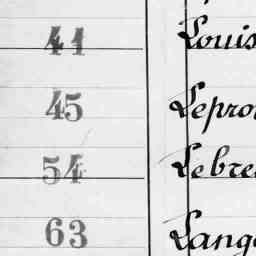 41 Louis
45 Lepro
54 Lebre
63 Lang